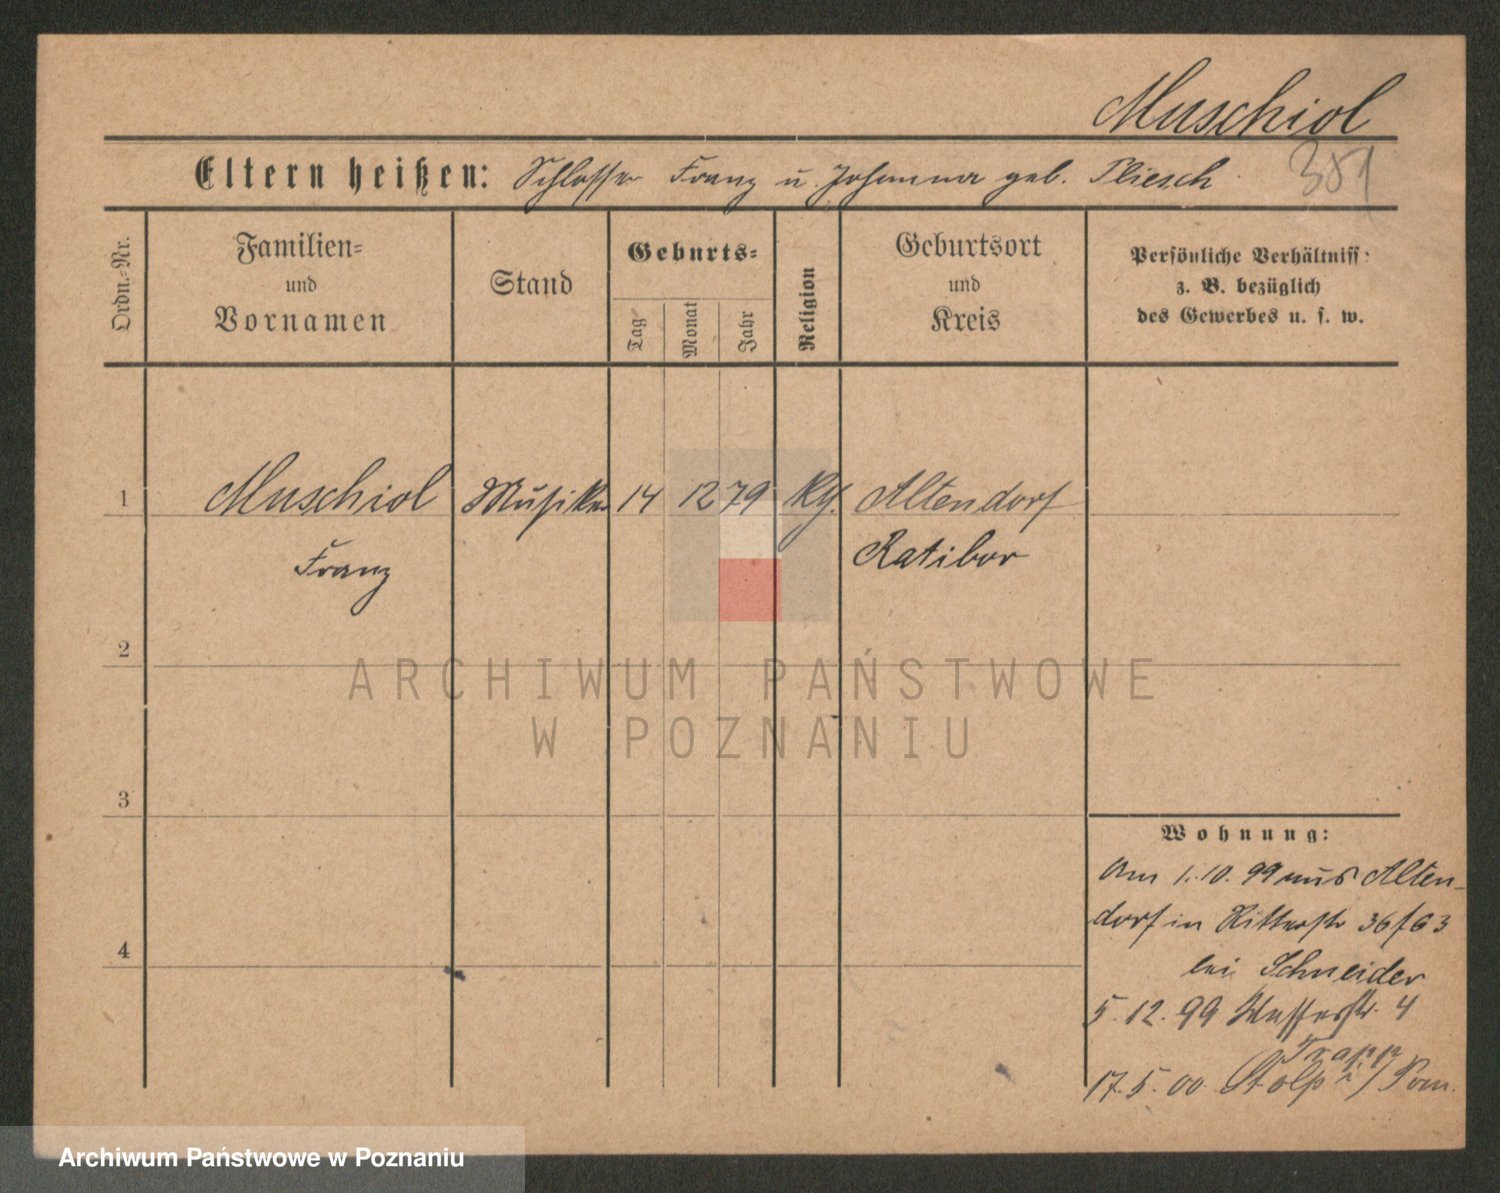 Muschiol
Eltern heißen: Schlosser Franz u. Johanna geb. Pliesch
381
Ordn.-Nr.
Familien-
und
Vornamen
Stand
Geburts-
Tag
Monat
Jahr
Religion
Geburtsort
und
Kreis
Persönliche Verhältniss:
z. B. bezüglich
des Gewerbes u. s. w.
1 Muschiol Musiker 14 12 79 Altendorf
Franz Ratibor
2
3
4
Wohnung:
Am 1.10.99 aus Alten-
dorf in Ritterstr 36/63
bei Schneider
5.12.99 Wasserstr. 4
Trapp
17.5.00 Stolp i/Pom.
ARCHIWUM PAŃSTWOWE
W POZNANIU
Archiwum Państwowe w Poznaniu